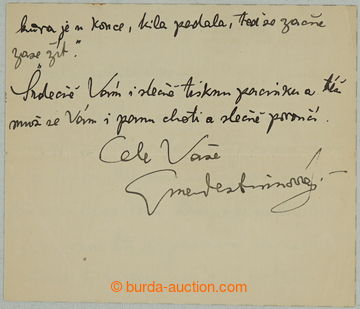 kůra je u konce, kila padala, teď se začne
zase žít."
Srdečně Vám i slečně tisknu pacinku a též
muž se Vám i panu choti a slečně poroučí.
Cele Vaše
Emadestinnová
© burda-auction.com